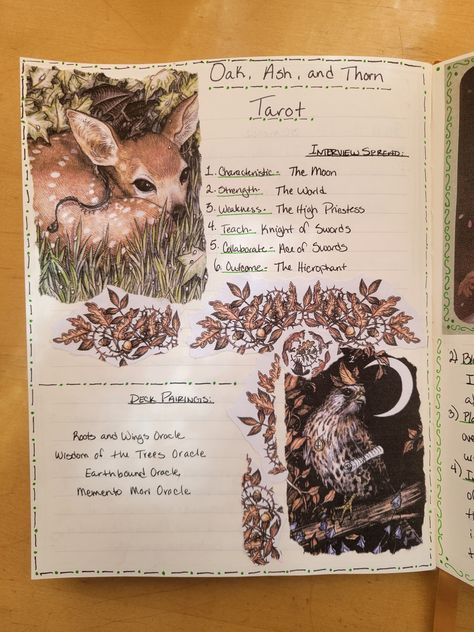 Oak, Ash, and Thorn
Tarot
Interview Spread:
1. Characteristic - The Moon
2. Strength - The World
3. Weakness - The High Priestess
4. Teach - Knight of Swords
5. Collaborate - Ace of Swords
6. Outcome - The Hierophant
Deck Pairings:
Roots and Wings Oracle
Wisdom of the Trees Oracle
Earthbound Oracle
Memento Mori Oracle
2)
3)
4)